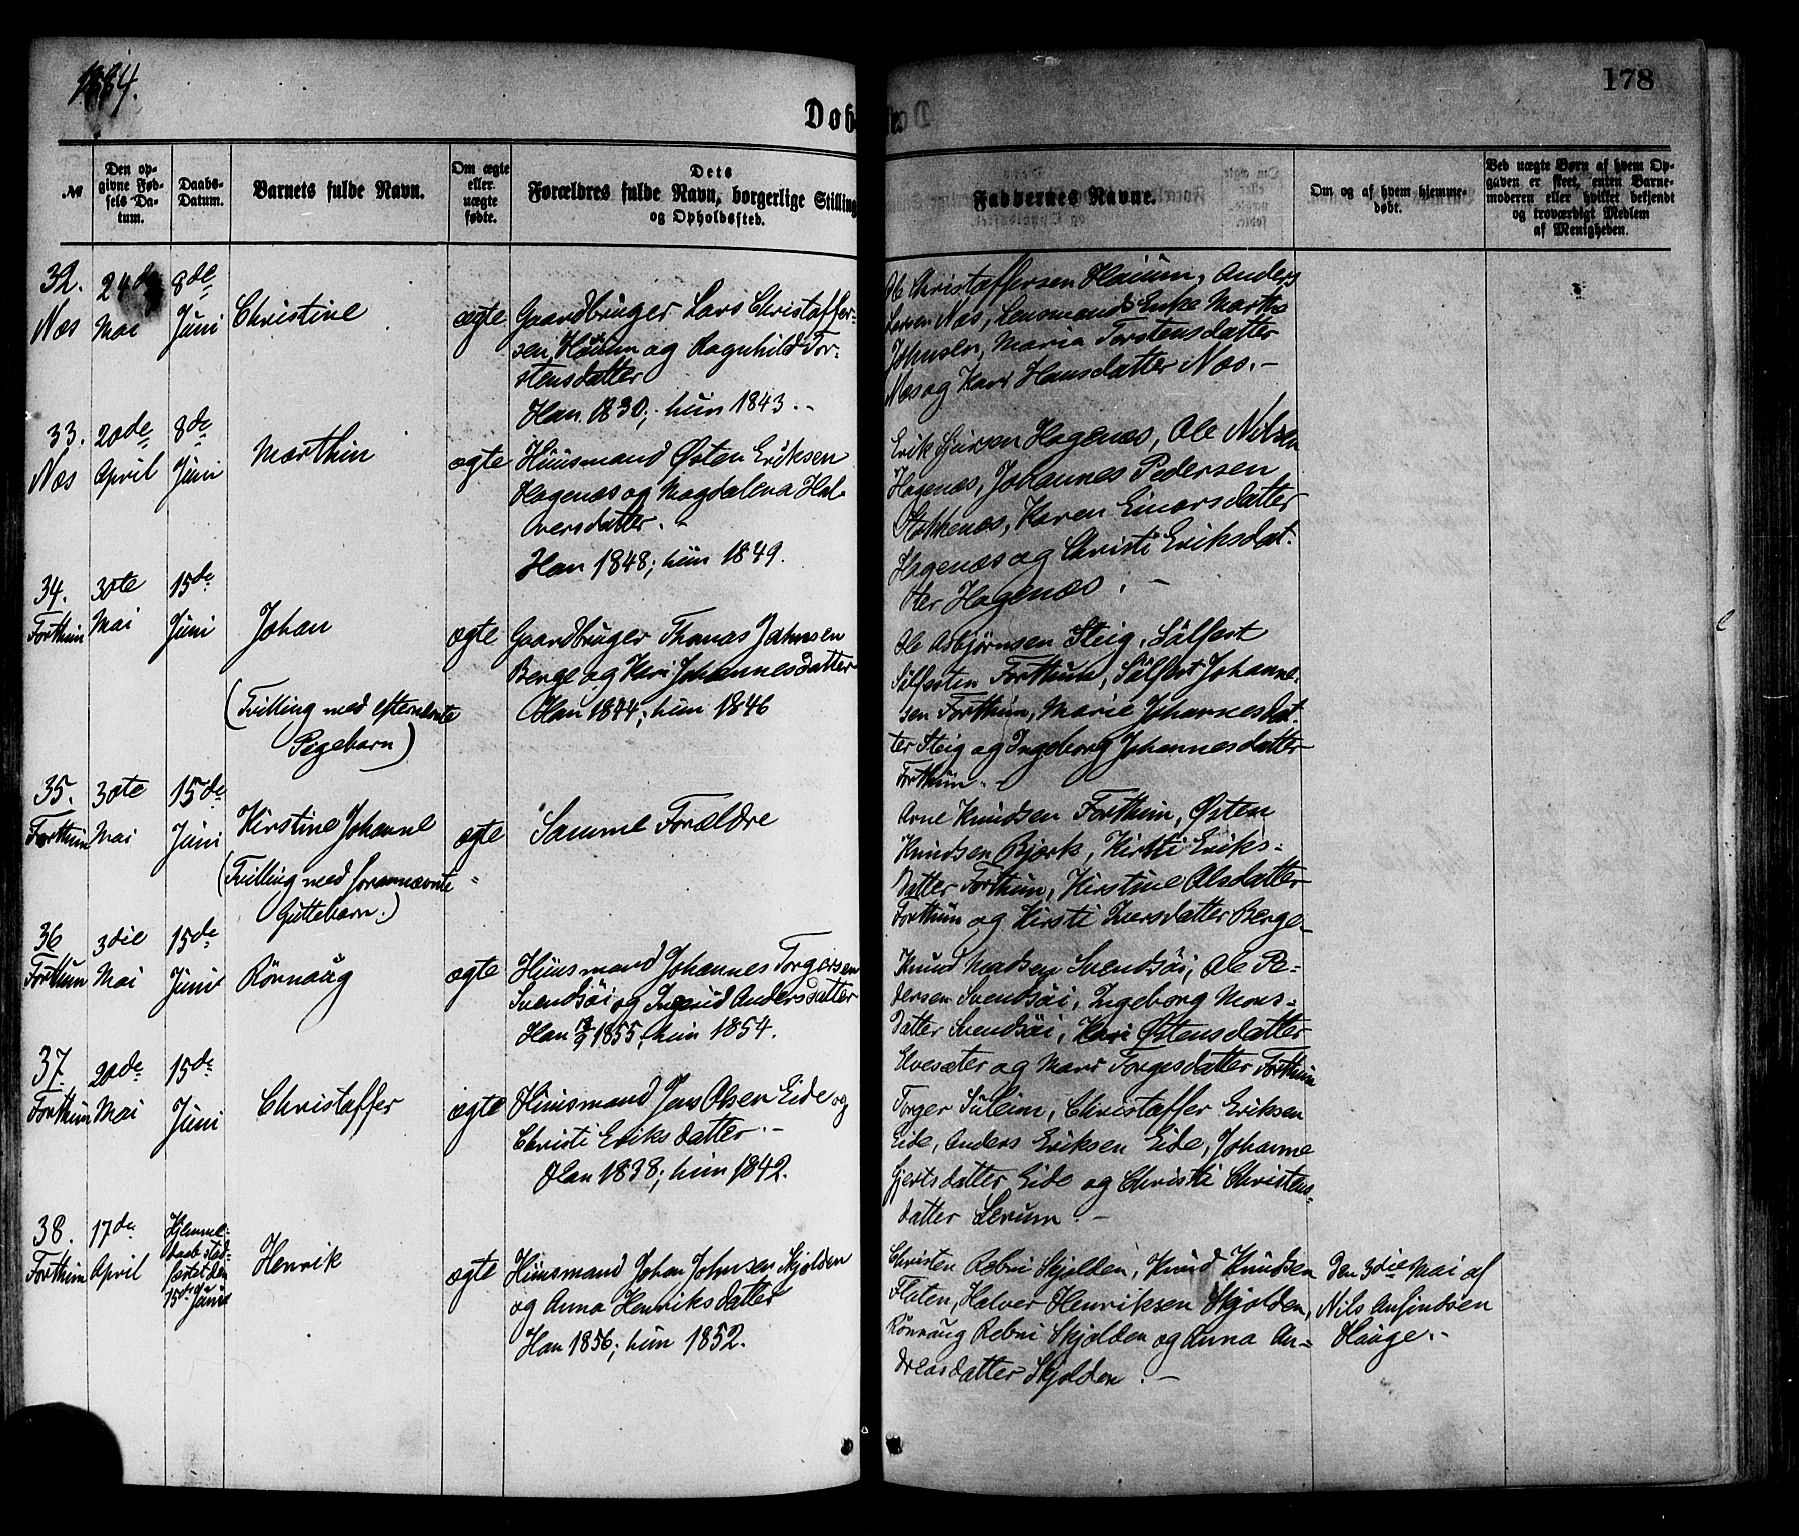 1884.
178
Døbte
№
Den opgivne Fødsels Datum.
Daabs-Datum.
Barnets fulde Navn.
Om ægte eller uægte fødte.
Dets Forældres fulde Navn, borgerlige Stilling og Opholdssted.
Faddernes Navne.
Om og af hvem hjemmedøbt.
Ved uægte Børn af hvem Opgaven er skeet, enten Barnemoderen eller hvilket bekjendt og troværdigt Medlem af Menigheden.
32.
Næs
24de
Mai
8de
Juni
Christine
ægte
Gaardbruger Lars Christaffer-
sen Høium og Ragnhild Tor-
stensdatter
Han 1830; hun 1843.-
Ole Christaffersen Høium, Anders
Larsen Næs, Lensmands Enke Marthe
Johnsen, Maria Torstensdatter
Næs og Kari Hansdatter Næs.-
33.
Næs
20de
April
8de
Juni
Marthin
ægte
Huusmand Østen Eriksen
Hagenæs og Magdalena Hal-
versdatter.
Han 1848; hun 1849.
Erik Hagenæs, Ole Nilsen
Hagenæs, Johannes Pedersen
Stokkenæs, Karen Einarsdatter
Hagenæs og Christi Eriksdat-
ter Hagenæs.-
34.
Forthun
30te
Mai
15de
Juni
Johan
(Tvilling med efternævnte
Pigebarn)
ægte
Gaardbruger Thomas Johnsen
Berge og Kari Johannesdatter
Han 1844; hun 1846
Ole Asbjørnsen Steig, Sülfest
Sülfesten Forthun, Sülfest Johanne-
sen Forthun, Marie Johannesdat-
ter Steig og Ingeborg Johannesdatter
Forthun.-
35.
Forthun
30te
Mai
15de
Juni
Kirstine Johanne
(Tvilling med forannævnte
Guttebarn.)
ægte
Samme Forældre
Arne Knudsen Forthun, Østen
Knudsen Bjørk, Kirsti Eriks-
datter Forthun, Kirstine Olsdatter
Forthun og Kirsti Iversdatter Berge-
36
Forthun
3die
Mai
15de
Juni
Rønnaug
ægte
Huusmand Johannes Torgersen
Svendsøi og Ingrid Andersdatter
Han 1855, hun 1854.
Knud Madsen Svendsøi, Ole Pe-
dersen Svendsøi, Ingeborg Mons-
datter Svendsøi, Kari Østensdatter
Elvesæter og Mari Torgesdatter Forthun
37.
Forthun
20de
Mai
15de
Juni
Christaffer
ægte
Huusmand Jens Olsen Eide og
Christi Eriksdatter.-
Han 1838; hun 1842.
Torger Süleim, Christaffer Eriksen
Eide, Anders Eriksen Eide, Johanne
Gjertsdatter Eide og Christi Christens-
datter Lerum.-
38.
Forthun
17de
April
Hjemme-
daab stad-
fæstet den
15de Juni
Henrik
ægte
Huusmand Johan Johnsen Skjolden
og Anna Henriksdatter
Han 1856; hun 1852.
Christen Rebni Skjolden, Knud Knudsen
Flaten, Halver Henriksen Skjolden,
Rønnaug Rebni Skjolden og Anna An-
dreasdatter Skjolden.-
Den 3die Mai af
Nils Anfindsen
Hauge.-